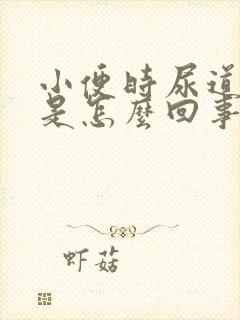 小便时尿道
是怎麼回事
虾菇